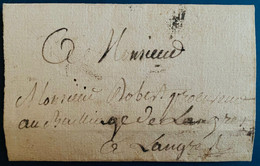 A Monsieur
Monsieur Robert procureur
au Bailliage de Langres
à Langres